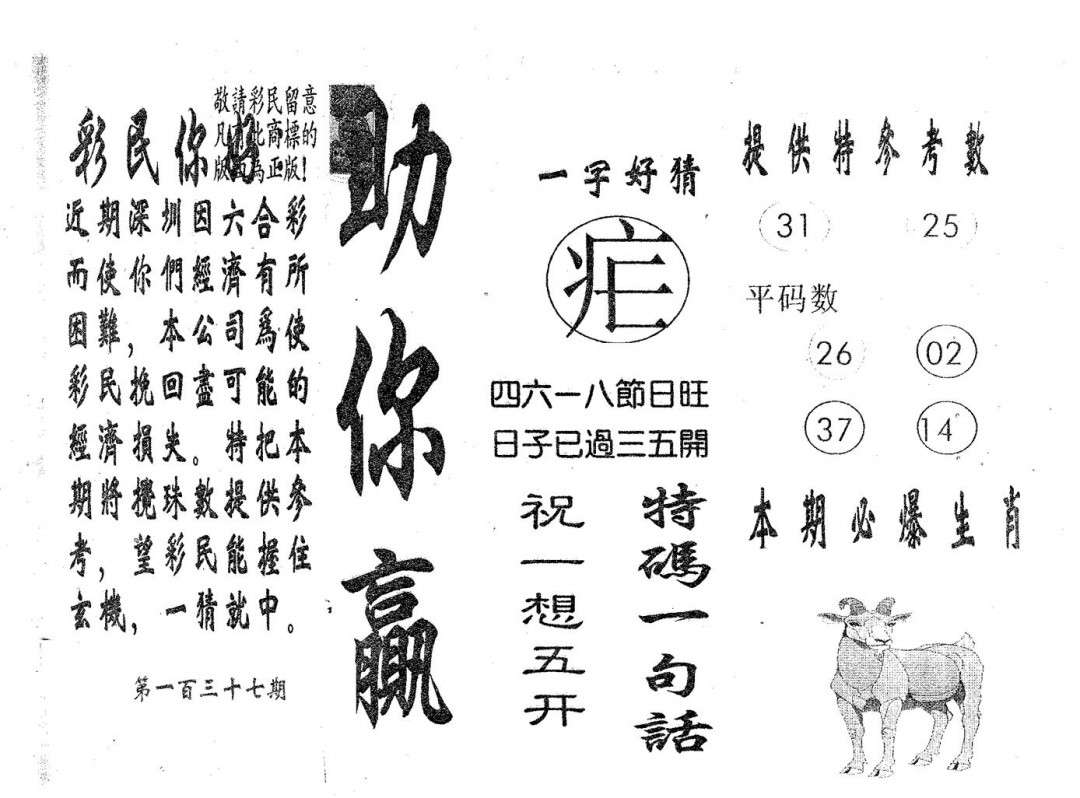 敬請彩民留意
凡有此商標的
版面為正版!
彩民你好
近期深圳因六合彩
而使你們經濟有所
困難，本公司爲使
彩民挽回盡可能的
經濟損失。特把本
期將攪珠數提供參
考，望彩民能握住
玄機，一猜就中。
第一百三十七期
助你贏
一字好猜
疟
四六一八節日旺
日子已過三五開
特碼一句話
祝一想五开
提供特參考數
31 25
平码数
26 02
37 14
本期必爆生肖